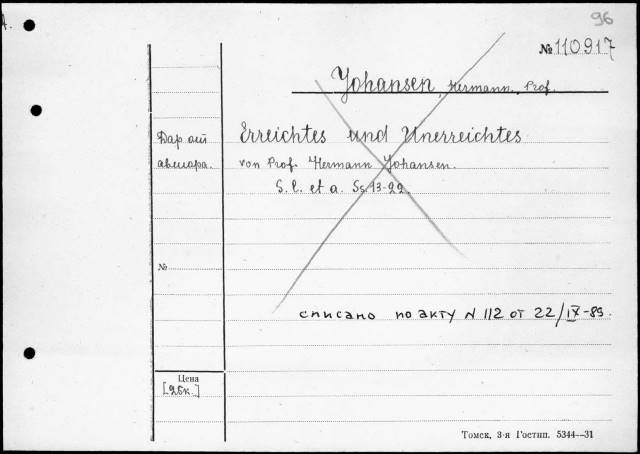 96
№ 110917
Johansen, Hermann, Prof.
Дар от
автора.
Erreichtes und Unerreichtes
von Prof. Hermann Johansen.
S. l. et a. Ss. 13-22.
№
списано по акту N 112 от 22/IX-89.
Цена
[25к.]
Томск, 3-я Гостип. 5344—31